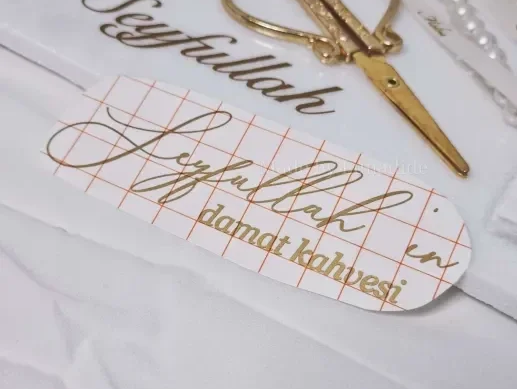 Seyfullah
Seyfullah in
damat kahvesi